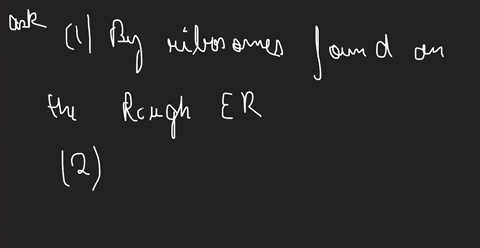 ask (1) By ribosomes found on
the Rough ER
(2)